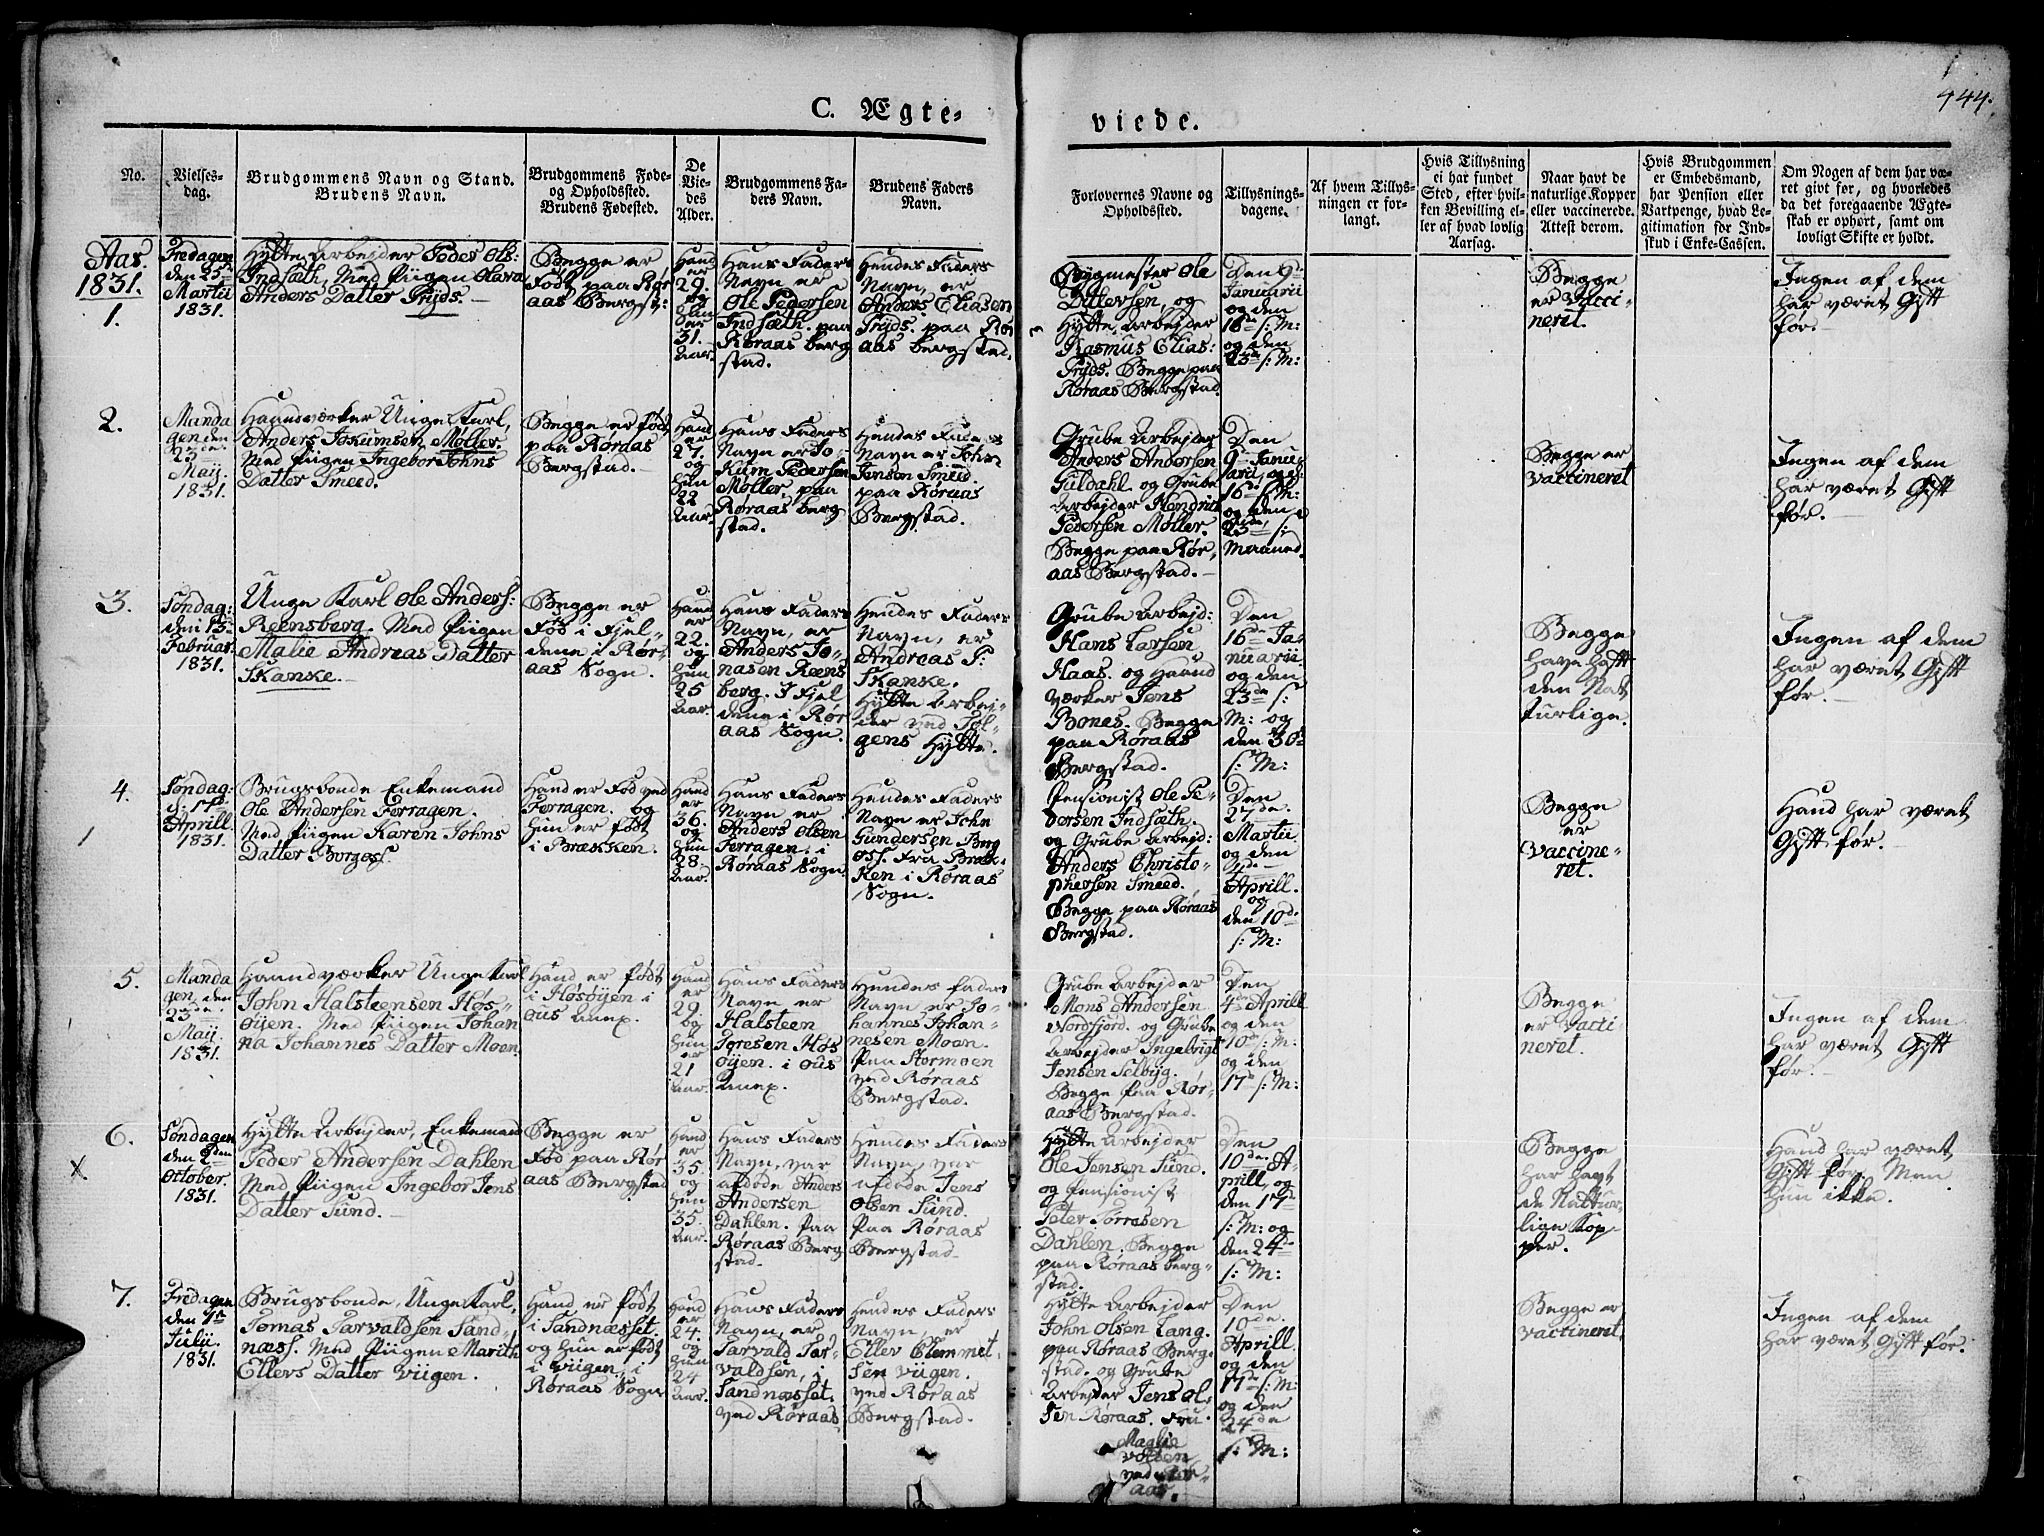 444.
C. Ægte-
viede.
No.
Vielses-
dag.
Brudgommens Navn og Stand.
Brudens Navn.
Brudgommens Føde-
og Opholdssted.
Brudens Fødested.
De
Vie-
des
Alder.
Brudgommens Fa-
ders Navn.
Brudens Faders
Navn.
Forlovernes Navne og
Opholdssted.
Tillysnings-
dagene.
Af hvem Tillys-
ningen er for-
langt.
Hvis Tillysning
ei har fundet
Sted, efter hvil-
ken Bevilling el-
ler af hvad lovlig
Aarsag.
Naar havt de
naturlige Kopper
eller vaccinerede.
Attest derom.
Hvis Brudgommen
er Embedsmand,
har Pension eller
Vartpenge, hvad Le-
gitimation for Ind-
skud i Enke-Cassen.
Om Nogen af dem har væ-
ret givt før, og hvorledes
da det foregaaende Ægte-
skab er ophørt, samt om
lovligt Skifte er holdt.
Aar.
1831.
1.
Fredagen
den 25de
Martii
1831.
Hytte Arbejder Peder Ols:
Indsæth, Med Piigen Olava
Anders Datter Prÿds.
Begge er
Født paa Rør
aas Bergst:
Hand
er
29.
og
hun
er
31.
Aar.
Hans Faders
Navn er
Ole Pedersen
Indsæth. paa
Røraas berg
stad.
Hendes Faders
Navn, er
Anders Eliasen
Prÿds. paa Rør
aas bergstad.
Bÿgmester Ole
Ditlevsen, og
Hytte Arbejder
Rasmus Elias:
Prÿds. Begge paa
Røraas Bergstad
Den 9de
Januarii
og den
16de s: M:
og den
23de s: M:
Begge
er Vacci-
neret.
Ingen af dem
har været Gift
før.
2.
Manda
gen den
23de
Maij.
1831.
Haandværker Unge Karl,
Anders Jokumsen Møller.
Med Piigen Ingebor Johns
Datter Smeed.
Begge er født
paa Røraas
Bergstad.
Hand
er
27.
og
hun
22
Aar.
Hans Faders
Navn er Jo-
kum Pedersen
Møller, paa
Røraas berg
stad.
Hendes Faders
Navn er John
Jensen Smeed.
paa Røraas
Bergstad.
Grube Arbejder
Anders Andersen
Guldahl og Grube
Arbejder Hendrich
Pedersen Møller.
Begge paa Rør,
aas Bergstad.
Den
9de Janu-
arii, og d
16de s: M:
og den
23de s:
Maaned.
Begge er
vaccineret
Ingen af dem
har været Gift
før.
3.
Søndag:
den 13de
Februar
1831.
Unge Karl Ole Anders:
Reensberg. Med Piigen
Malie Andreas Datter
Skanke.
Begge er
Fød i Fjel-
dene i Rør-
aas Sogn.
Hand
er
22.
og
hun
25
Aar.
Hans Faders
Navn, er
Anders Jo-
nasen Reens
berg. I Fjel
dene i Rør
aas Sogn.
Hendes Faders
Navn, er
Andreas P:
Skanke.
Hytte Arbej-
der ved Tol-
gens Hytte.
Grube Arbejd:
Hans Larsen
Haas. og Haand
værker Jens
Bones. Begge
paa Røraas
Bergstad.
Den
16de Ja-
nuarii
og den
23de s:
M: og
den 30de
s: M:
Begge
have haft
den Nat
turlige.
Ingen af dem
har været Gift
før.
4.
Søndag:
d: 17de
Aprill
1831.
Brugsbonde Enkemand
Ole Andersen Ferragen.
Med Piigen Karen Johns
Datter Borgos.
Hand er Fød ved
Ferragen. og
hun er født
i Brækken.
Hand
er
36.
og
hun
28.
Aar.
Hans Faders
Navn er
Anders Olsen
Ferragen. i
Røraas Sogn.
Hendes Faders
Navn er John
Gundersen Borg
os. Fra Bræk-
ken i Røraas
Sogn.
Pensionist Ole Pe-
dersen Indsæth.
og Grube Arbejd:
Anders Christo-
phersen Smeed.
Begge paa Røraas
Bergstad.
Den
27de
Martii
og den
4de
Aprill.
og
den 10de
s: M:
Begge
er
Vaccine-
ret.
Hand har været
Gift før.
5.
Manda
gen, den
23de
Maij
1831.
Haandværker Unge Karl
John Halsteensen Høs-
øÿen. Med Piigen Johan
na Johannes Datter Moen.
Hand er født
i Høsøÿen i
Ous Anex.
Hand
er
29.
og
hun
er
21
Aar.
Hans Faders
Navn er
Halsteen
Joresen Høs
øÿen. i Ous
Anex.
Hendes faders
Navn, er Jo-
hannes Johan-
nesen Moen.
Paa Stormoen
ved Røraas
Bergstad.
Grube Arbejder
Mons Andersen
Nordfjord. og Grube
Arbejder Ingebrigt
Jensen Selbÿg.
Begge paa Rør-
aas Bergstad.
Den
4de Aprill
og den
10de s: M:
og den
17de s: M:
Begge
er Vacci-
neret.
Ingen af dem
har været Gift
før.
6.
Søndagen
den 2den
October.
1831.
Hytte Arbejder, Enkemand
Peder Andersen Dahlen
Med Piigen Ingebor Jens
Datter Sund.
Begge er
Fød paa Rør
aas Bergstad
Hand
er
35.
og
hun
35.
Aar.
Hans Faders
Navn, var
afdøde Anders
Andersen
Dahlen. paa
Røraas Berg
stad.
Hendes Faders
Navn, var
afdøde Jens
Olsen Sund.
Paa Røraas
Bergstad.
Hytte Arbejder
Ole Jensen Sund.
og Pensionist
Peter Torresen
Dahlen. Begge
paa Røraas berg-
stad.
Den
10de A-
prill, og
den 17de
s: M: og
den 24de
s: M:
Begge
har havt
de Nattur-
lige Kop-
per.
Hand har været
Gift før. Men
hun ikke.
7.
Fredagen
den 1ste
Julii
1831.
Brugsbonde, Unge Karl,
Tomas Tarvaldsen Sand-
næss. Med Piigen Marith
Ellevs Datter Viigen.
Hand er født
i Sandnæsset.
og hun er født
i Viigen, i
Røraas Sogn
Hand
er
24.
og
hun
24
Aar.
Hans Faders
Navn, er
Tarvald Tar-
valdsen, i
Sandnæsset.
ved Røraas
Hendes Faders
Navn, er
Ellev Clemmet-
sen Viigen.
ved Røraas
Bergstad.
Hytte Arbejder
John Olsen Lang.
paa Røraas Berg-
stad. og Grube
Arbejder Jens Ol-
sen Røraas.
Den
10de
Aprill.
og den
17de s: M:
og den
24de
s: M:
Begge er
vaccineret.
Ingen af dem
har været Gift før.